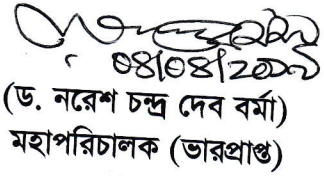 ০৪/০৪/২০০৯
(ড. নরেশ চন্দ্র দেব বর্মা)
মহাপরিচালক (ভারপ্রাপ্ত)